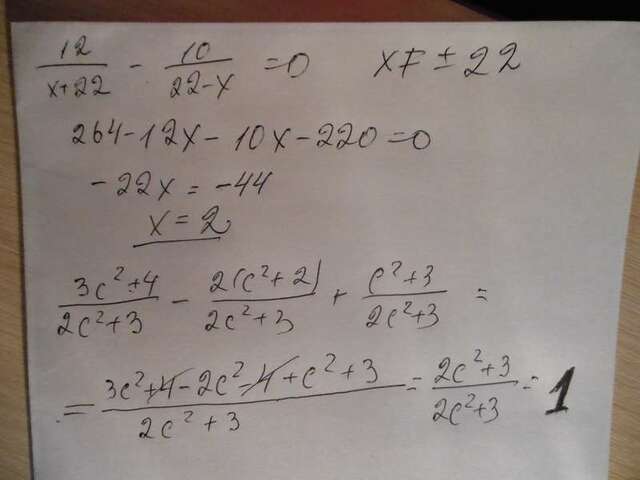 12/(x+22) - 10/(22-x) = 0    x ≠ ±22
264-12x-10x-220=0
-22x = -44
x = 2
(3c²+4)/(2c²+3) - 2(c²+2)/(2c²+3) + (c²+3)/(2c²+3) =
= (3c²+4-2c²-4+c²+3)/(2c²+3) = (2c²+3)/(2c²+3) = 1